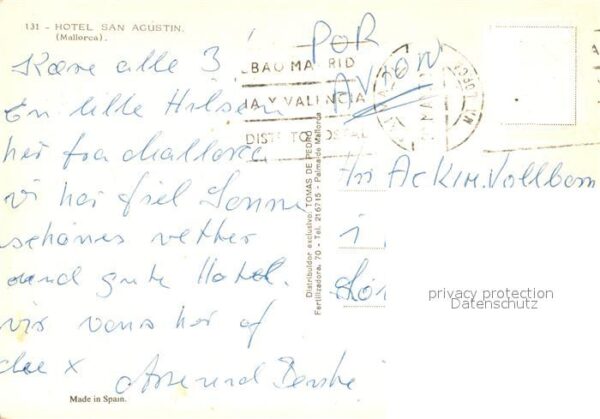 131 - HOTEL SAN AGUSTIN.
(Mallorca).
Kære alle 3
En lille Hilsen
her fra Mallorca
vi har fiel Sonne
schönes vetter
und gute Hotel.
her af
x
Made in Spain.
Distribuidor exclusivo: TOMAS DE PEDRO
Fertilizadora, 70 - Tel. 216715 - Palma de Mallorca
POR
AVION
BAO MADRID
A Y VALENCIA
DISTRITO POSTAL
Hr Ackim. Vollbom
i
privacy protection
Datenschutz